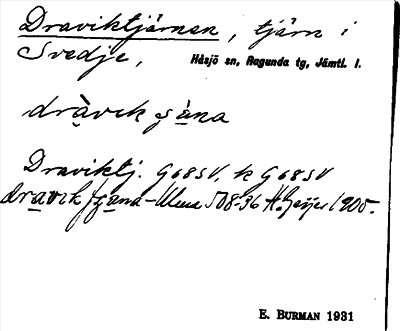 Draviktjärnen, tjärn i
Svedje, Håsjö sn, Ragunda tg, Jämtl. l.
dràvik jạ̀na
Draviktj. G 68 SV, k G 68 SV
508-36 H. Geijer 1905.
E. BURMAN 1931